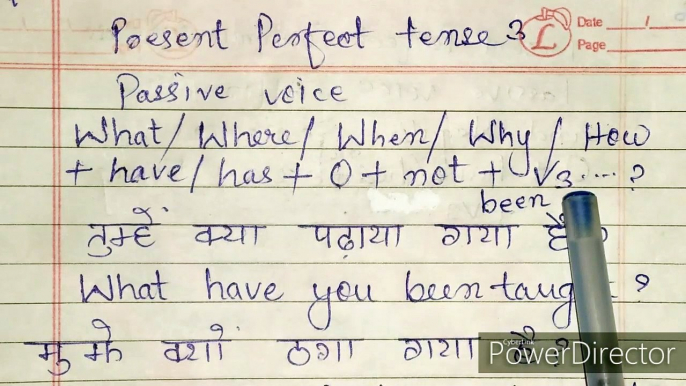 Present Perfect tense 3
L
Date
Page
Passive voice
What/ Where/ When/ Why / How
+ have/ has + O + not + V3....?
been
तुम्हें क्या पढ़ाया गया है
What have you been ?
मुझे क्यों ठगा गया है ?
CyberLink
PowerDirector